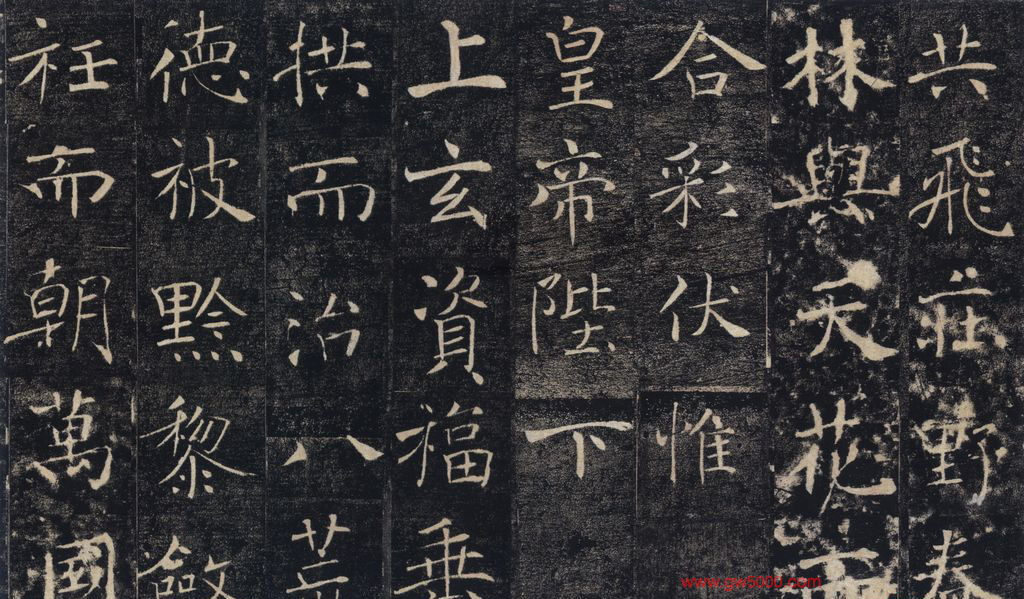 共飛莊野春
林與天花而
合彩伏惟
皇帝陛下
上玄資福垂
拱而治八荒
德被黔黎斂
衽而朝萬國
www.gw500d.com